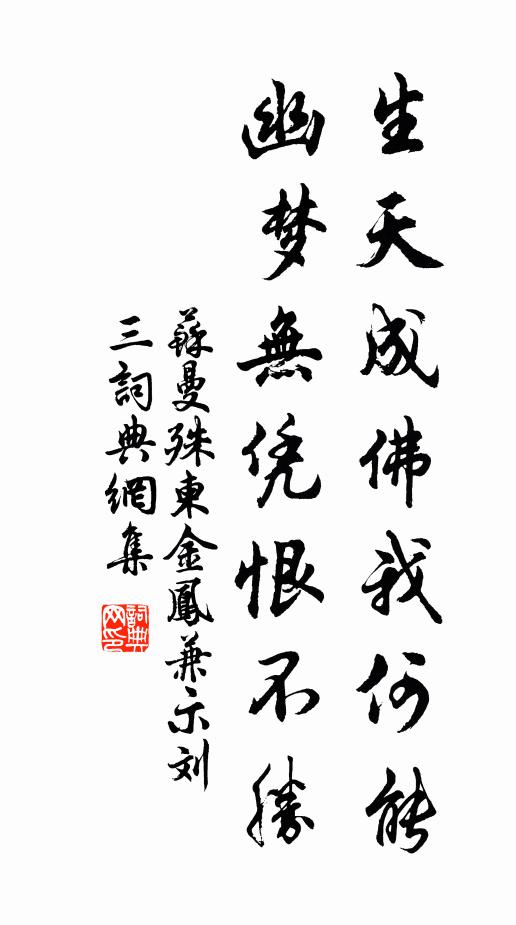 生天成佛我何能
幽梦無凭恨不勝
蘇曼殊東金鳳兼示刘
三詞典網集
詞典網印